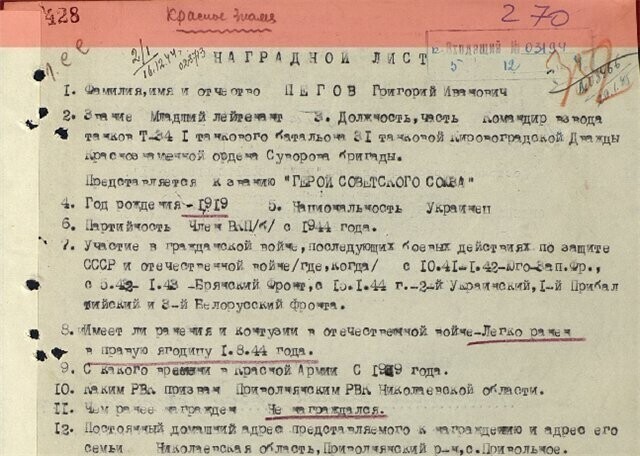 428
Красное Знамя
270
2/1
16.12.44
02873
НАГРАДНОЙ ЛИСТ
Входящий № 03194
5 12
1. Фамилия,имя и отчество ПЕГОВ Григорий Иванович
2. Звание Младший лейтенант 3. Должность,часть Командир взвода
танков Т-34 I танкового батальона 31 танковой Кировоградской Дважды
Краснознаменной ордена Суворова бригады.
Представляется к званию "ГЕРОЙ СОВЕТСКОГО СОЮЗА"
4. Год рождения -1919 5. Национальность Украинец
6. Партийность Член ВКП/б/ с 1944 года.
7. Участие в гражданской войне,последующих боевых действиях по защите
СССР и отечественной войне/где,когда/ с 10.41-1.42-Юго-Зап.Фр.,
с 5.42- 1.43 -Брянский Фронт,с 15.1.44 г.-2-й Украинский,1-й Прибал
тийский и 3-й Белорусский Фронта.
8. Имеет ли ранения и контузии в отечественной войне-Легко ранен
в правую ягодицу 1.8.44 года.
9. С какого времени в Красной Армии С 1919 года.
10. Каким РВК призван Приволнянским РВК Николаевской области.
11. Чем ранее награжден Не награждался.
12. Постоянный домашний адрес представляемого к награждению и адрес его
семьи Николаевская область,Приволнянский р-н,с.Привольное.